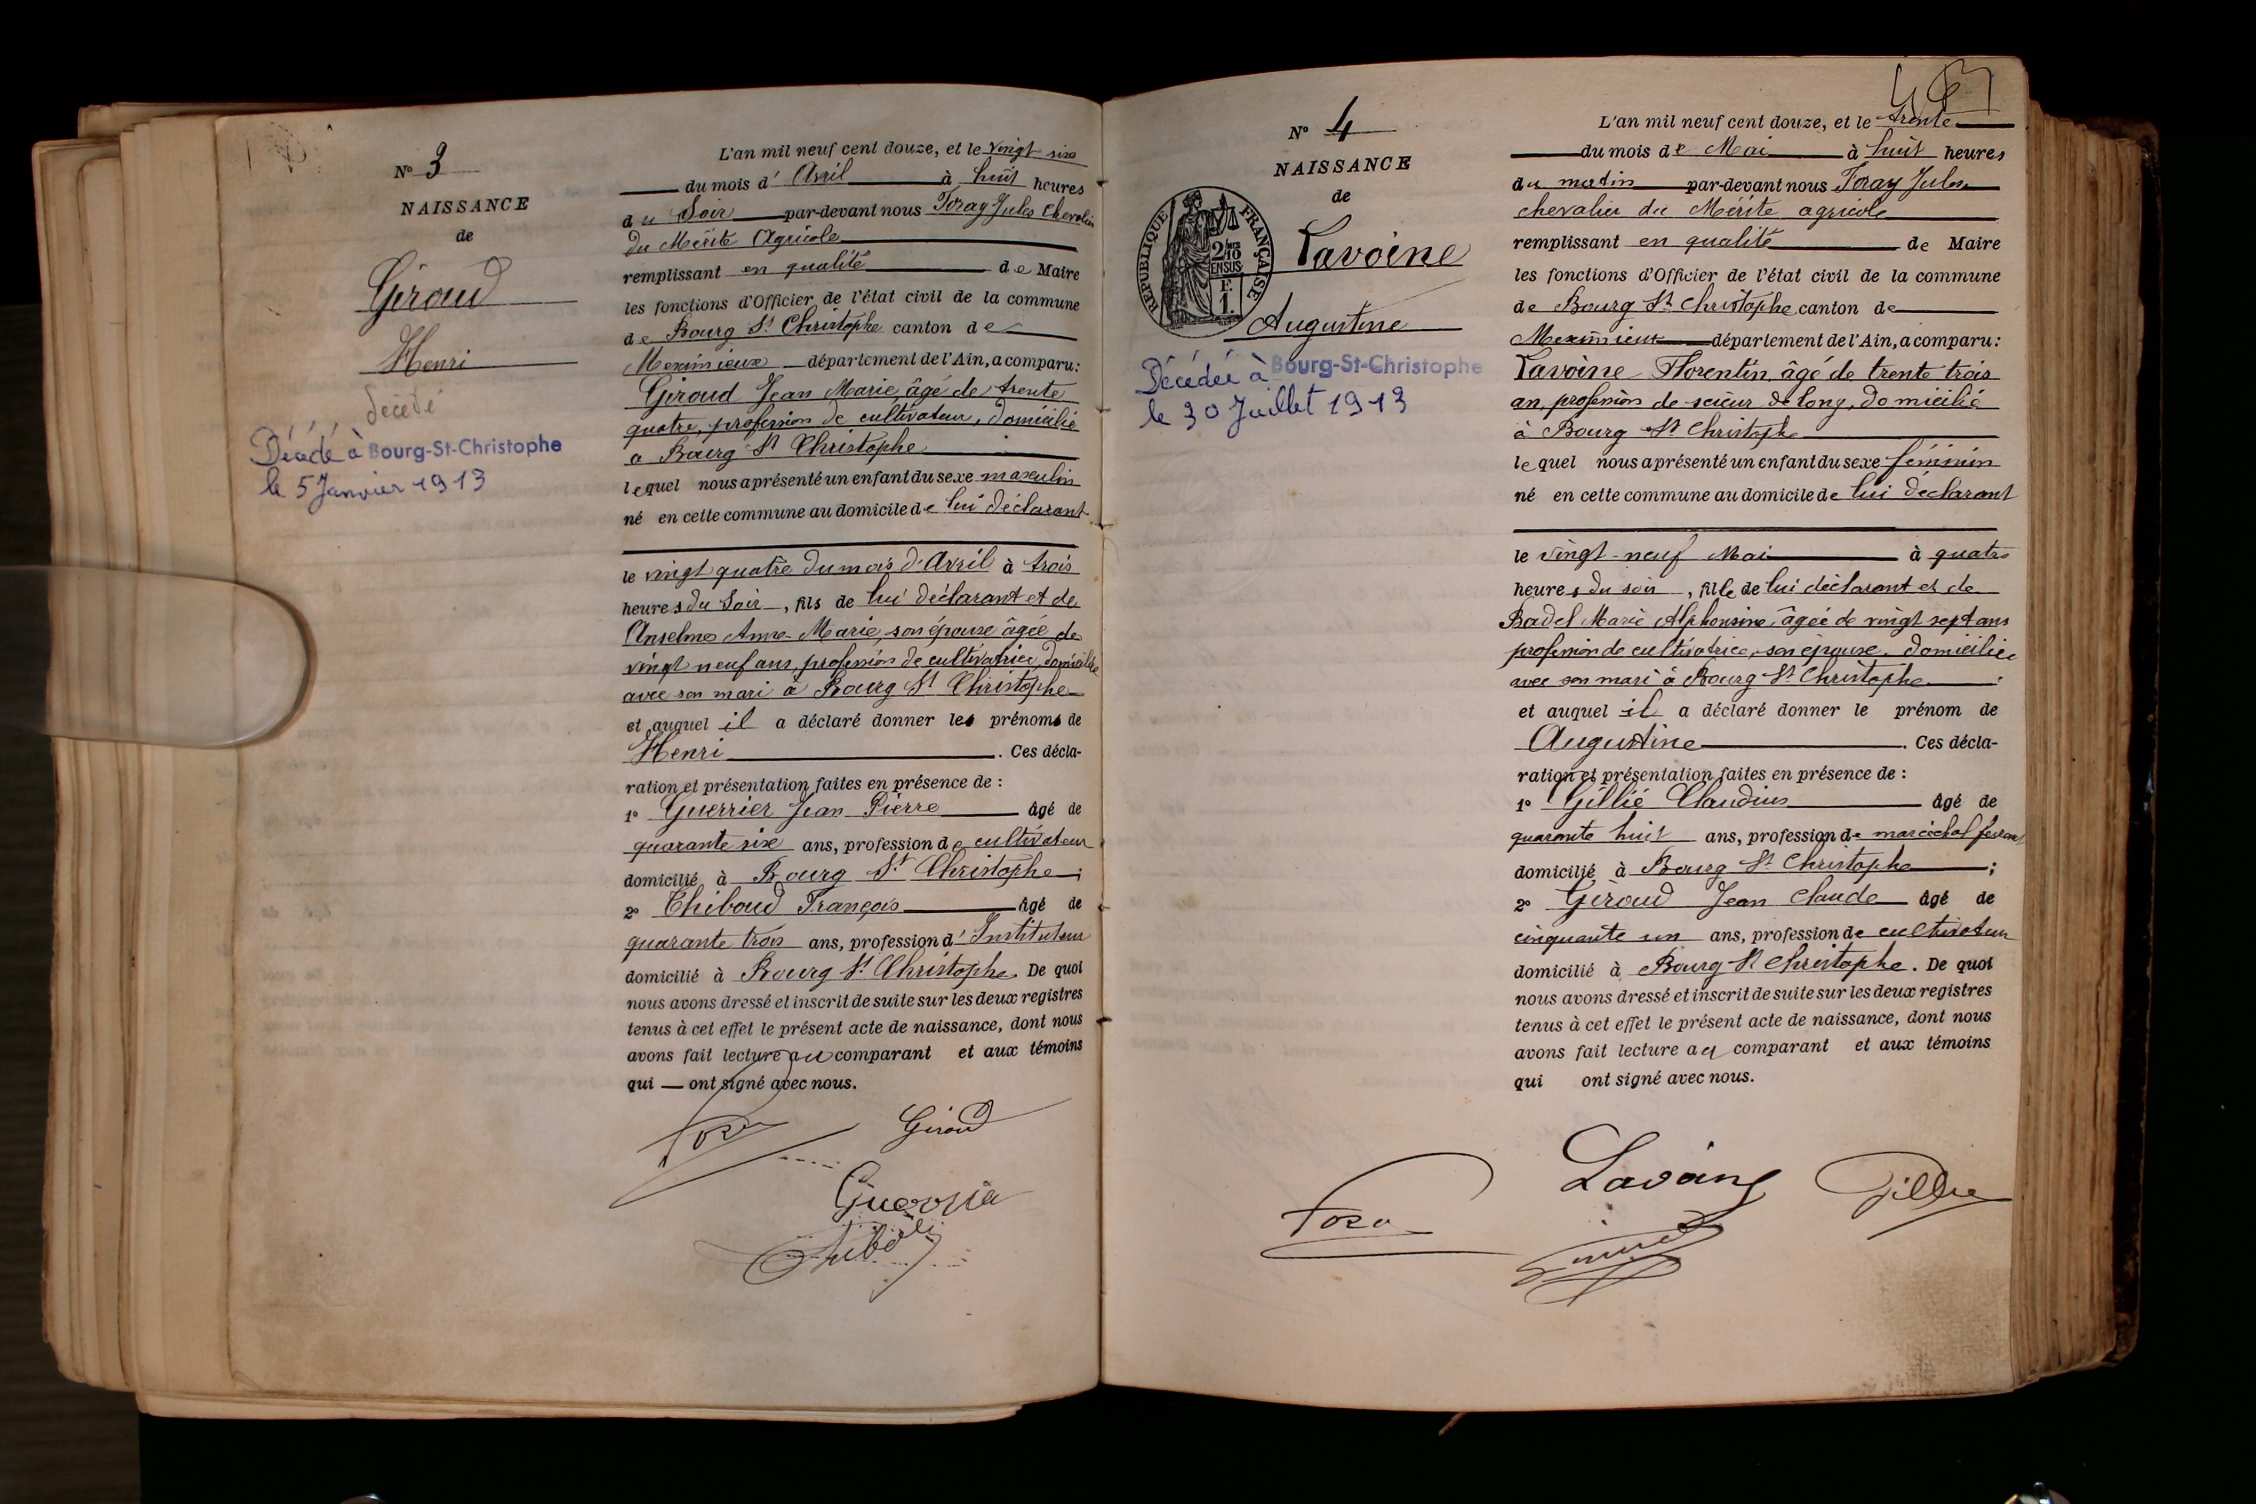 N° 3
NAISSANCE
de
Giroud
Henri
décédé
Décédé à Bourg-St-Christophe
le 5 Janvier 1913
L'an mil neuf cent douze, et le vingt six
du mois d' Avril à huit heures
du Soir par-devant nous Foray Jules Chevalier
du Mérite Agricole
remplissant en qualité de Maire
les fonctions d'Officier de l'état civil de la commune
de Bourg St Christophe canton de
Meximieux département de l'Ain, a comparu:
Giroud Jean Marie, âgé de trente
quatre, profession de cultivateur, domicilié
à Bourg St Christophe
lequel nous a présenté un enfant du sexe masculin
né en cette commune au domicile de lui déclarant
le vingt quatre du mois d'Avril à trois
heures du Soir, fils de lui déclarant et de
Anselme Anne-Marie, son épouse âgée de
vingt neuf ans, profession de cultivatrice, domiciliée
avec son mari à Bourg St Christophe
et auquel il a déclaré donner les prénoms de
Henri. Ces décla-
ration et présentation faites en présence de :
1° Guerrier Jean Pierre âgé de
quarante six ans, profession de cultivateur
domicilié à Bourg St Christophe ;
2° Thiboud François âgé de
quarante trois ans, profession d' Instituteur
domicilié à Bourg St Christophe. De quoi
nous avons dressé et inscrit de suite sur les deux registres
tenus à cet effet le présent acte de naissance, dont nous
avons fait lecture au comparant et aux témoins
qui — ont signé avec nous.
Giroud
N° 4
NAISSANCE
de
Lavoine
Augustine
RÉPUBLIQUE FRANÇAISE
2/10 EN SUS
F.
1.
Décédée à Bourg-St-Christophe
le 30 Juillet 1913
L'an mil neuf cent douze, et le trente
du mois de Mai à huit heures
du matin par-devant nous Foray Jules
chevalier du Mérite agricole
remplissant en qualité de Maire
les fonctions d'Officier de l'état civil de la commune
de Bourg St Christophe canton de
Meximieux département de l'Ain, a comparu:
Lavoine Florentin, âgé de trente trois
an, profession de scieur de long, domicilié
à Bourg St Christophe
lequel nous a présenté un enfant du sexe féminin
né en cette commune au domicile de lui déclarant
le vingt-neuf Mai à quatre
heures du soir, fille de lui déclarant et de
Badel Marie Alphonsine, âgée de vingt sept ans
profession de cultivatrice, son épouse. domiciliée
avec son mari à Bourg St Christophe
et auquel il a déclaré donner le prénom de
Augustine. Ces décla-
ration et présentation faites en présence de :
1° Gillié Claudius âgé de
quarante huit ans, profession de maréchal ferrant
domicilié à Bourg St Christophe ;
2° Giroud Jean Claude âgé de
cinquante un ans, profession de cultivateur
domicilié à Bourg St Christophe. De quoi
nous avons dressé et inscrit de suite sur les deux registres
tenus à cet effet le présent acte de naissance, dont nous
avons fait lecture au comparant et aux témoins
qui ont signé avec nous.
Lavoine